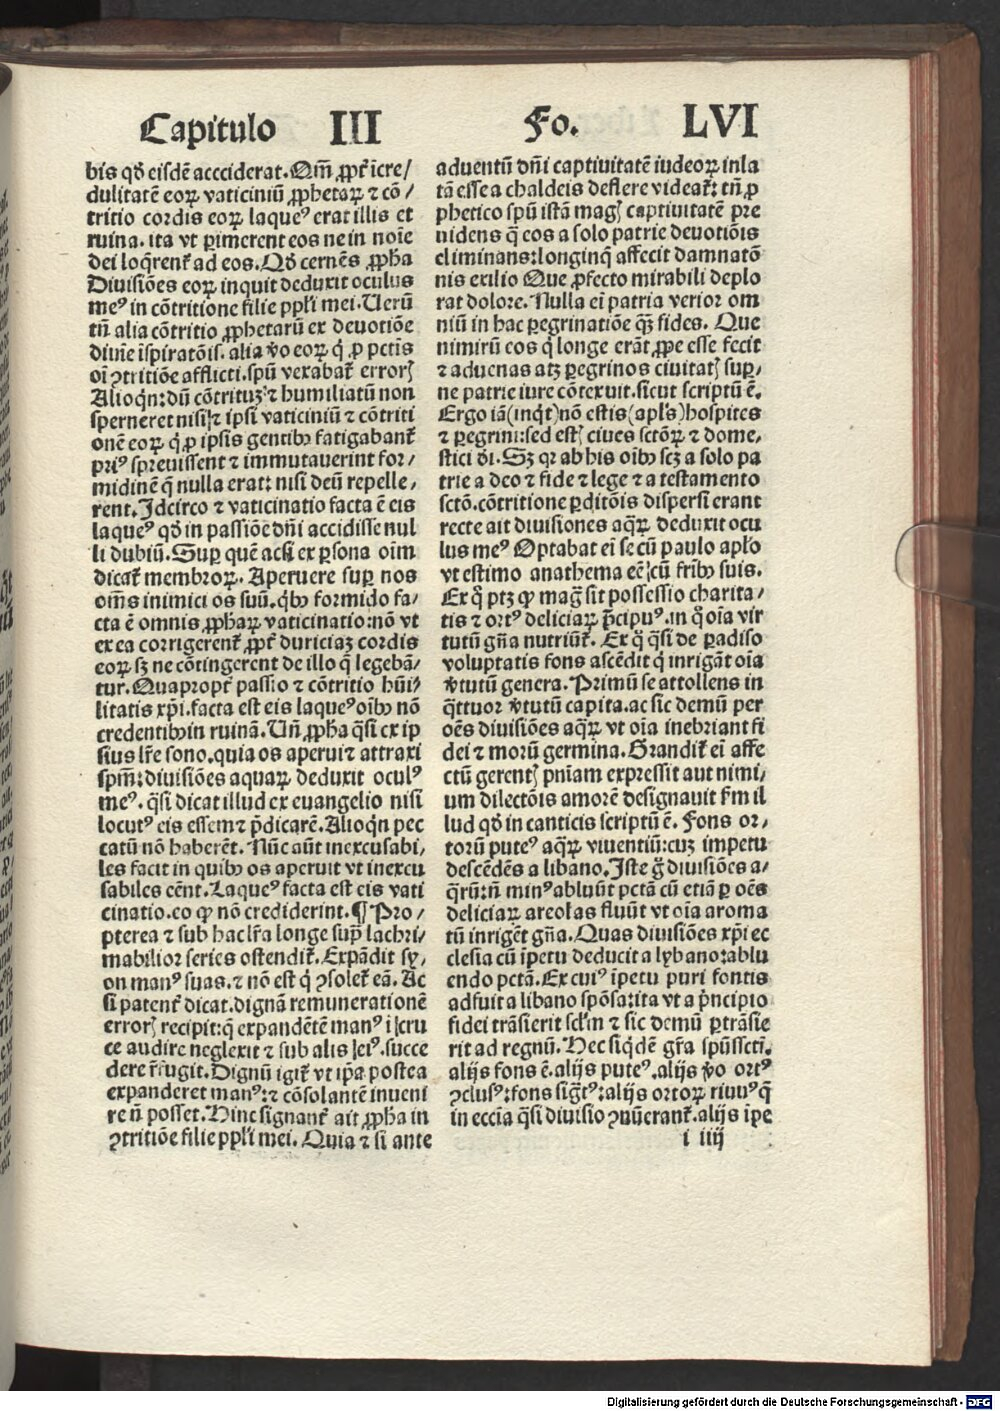 Capitulo III Fo. LVI
bis qď eisdē accciderat. Qm̄ ꝓpt̄ īcre/
dulitatē eoꝝ vaticiniū ꝓphetaꝝ ⁊ cō/
tritio cordis eoꝝ laqueꝰ erat illis et
ruina. ita vt ꝑimerent eos ne in noīe
dei loq̄rent̄ ad eos. Qď cernēs ꝓpha
Diuisiōes eoꝝ inquit deduxit oculus
meꝰ in cōtritione filie ppl̄i mei. Uerū
tn̄ alia cōtritio ꝓphetarū ex deuotiōe
diuīe īspiratōis. alia v̄o eoꝝ q̇ ꝓ pctīs
oī ꝯtritiōe afflicti. spū vexabat̄ erroꝝ
Alioqn̄: dū cōtrituꝫ ⁊ humiliatū non
sperneret nisi ⁊ ipsi vaticiniū ⁊ cōtriti
onē eoꝝ q̇ ꝓ ipsis gentibꝰ fatigabant̄
priꝰ spreuissent ⁊ immutauerint for/
midinē q̄ nulla erat: nisi deū repelle/
rent. Jdcirco ⁊ vaticinatio facta ē eis
laqueꝰ qď in passiōe dn̄i accidisse nul
li dubiū. Suꝑ quē acsi ex ꝑsona oīm
dicat̄ membroꝝ. Aperuere suꝑ nos
om̄s inimici os suū. qͥbꝰ formido fa/
cta ē omnis ꝓphaꝝ vaticinatio: nō vt
ex ea corrigerent̄ ꝓpt̄ duriciaꝫ cordis
eoꝝ sꝫ ne cōtingerent de illo q̄ legebā/
tur. Quapropt̄ passio ⁊ cōtritio hūi/
litatis xp̄i. facta est eis laqueꝰ oībꝰ nō
credentibꝰ in ruinā. Un̄ ꝓpha q̄si ex ip
sius lr̄e sono. quia os aperui ⁊ attraxi
spm̄: diuisiōes aquaꝝ deduxit oculꝰ
meꝰ. q̄si dicat illud ex euangelio nisi
locutꝰ eis essem ⁊ p̄dicarē. Alioqn̄ pec
catū nō haberēt. Nūc aūt inexcusabi/
les facit in quibꝰ os aperuit vt inexcu
sabiles eēnt. Laqueꝰ facta est eis vati
cinatio. eo ꝙ nō crediderint. ¶ Pro/
pterea ⁊ sub hac lr̄a longe suꝑ lachri/
mabilior series ostendit̄. Expādit sy/
on manꝰ suas. ⁊ nō est q̇ ꝯsolet̄ eā. Ac
si patent̄ dicat. dignā remunerationē
erroꝝ recipit: q̄ expandētē manꝰ i cru
ce audire neglexit ⁊ sub alis eiꝰ. succe
dere refugit. Dignū igit̄ vt ip̄a postea
expanderet manꝰ: ⁊ cōsolantē inueni
re n̄ posset. Hinc signant̄ ait ꝓpha in
ꝯtritiōe filie ppl̄i mei. Quia ⁊ si ante
aduentū dn̄i captiuitatē iudeoꝝ inla
tā esse a chaldeis deflere videat̄: tn̄ ꝓ
phetico spū istā magꝭ captiuitatē pre
uidens q̄ eos a solo patrie deuotiōis
eliminans: longinq̄ affecit damnatō
nis exilio Que ꝓfecto mirabili deplo
rat dolore. Nulla eī patria verior om
niū in hac ꝑegrinatiōe q̄ꝫ fides. Que
nimirū eos q̇ longe erāt ꝓpe esse fecit
⁊ aduenas atqꝫ ꝑegrinos ciuitatꝭ suꝑ/
ne patrie iure cōtexuit. sicut scriptū ē.
Ergo iā (inq̇t) nō estis (apl̄s) hospites
⁊ ꝑegrini: sed estꝭ ciues sctōꝝ ⁊ dome/
stici di. Sꝫ qꝛ ab his oībꝰ scꝫ a solo pa
trie a deo ⁊ fide ⁊ lege ⁊ a testamento
sctō. cōtritione ꝑditōis dispersi erant
recte ait diuisiones aq̄ꝝ deduxit ocu
lus meꝰ Optabat eī se cū paulo aplo
vt estimo anathema eē cū fr̄ibꝰ suis.
Ex q̊ ptꝫ ꝙ mag̈ sit possessio charita/
tis ⁊ ortꝰ deliciaꝝ p̄cipuꝰ. in q̊ oīa vir
tutū gn̄a nutriūt̄. Ex q̊ q̄si de ꝑadiso
voluptatis fons ascēdit q̇ inrigāt oīa
v̄tutū genera. Primū se attollens in
q̄ttuor v̄tutū capita. ac sic demū per
oēs diuisiōes aq̄ꝝ vt oīa inebriant fi
dei ⁊ morū germina. Grandit̄ eī affe
ctū gerentꝭ pn̄iam expressit aut nimi/
um dilectōis amorē designauit f̄m il
lud qď in canticis scriptū ē. Fons or/
torū puteꝰ aq̄ꝝ viuentiū: cuꝫ impetu
descēdēs a libano. Iste g̊ diuisiōes a/
q̄rū: n̄ minꝰ abluūt pctā cū etiā ꝑ oēs
deliciaꝝ areolas fluūt vt oīa aroma
tū inrigēt gn̄a. Quas diuisiōes xp̄i ec
clesia cū īpetu deducit a lybano: ablu
endo pctā. Ex cuiꝰ īpetu puri fontis
adfuit a libano spōsa: ita vt a p̄ncipio
fidei trāsierit scl̄m ⁊ sic demū ꝑtrāsie
rit ad regnū. Hec siq̇dē gr̄a spūsscti.
alijs fons ē. alijs puteꝰ. alijs v̄o ortꝰ
ꝯclusꝰ: fons sig̈tꝰ: alijs ortoꝝ riuuꝰ q̄
in eccīa q̄si diuisio ꝯuūerant̄. alijs īpe
i iiij
Digitalisierung gefördert durch die Deutsche Forschungsgemeinschaft - DFG